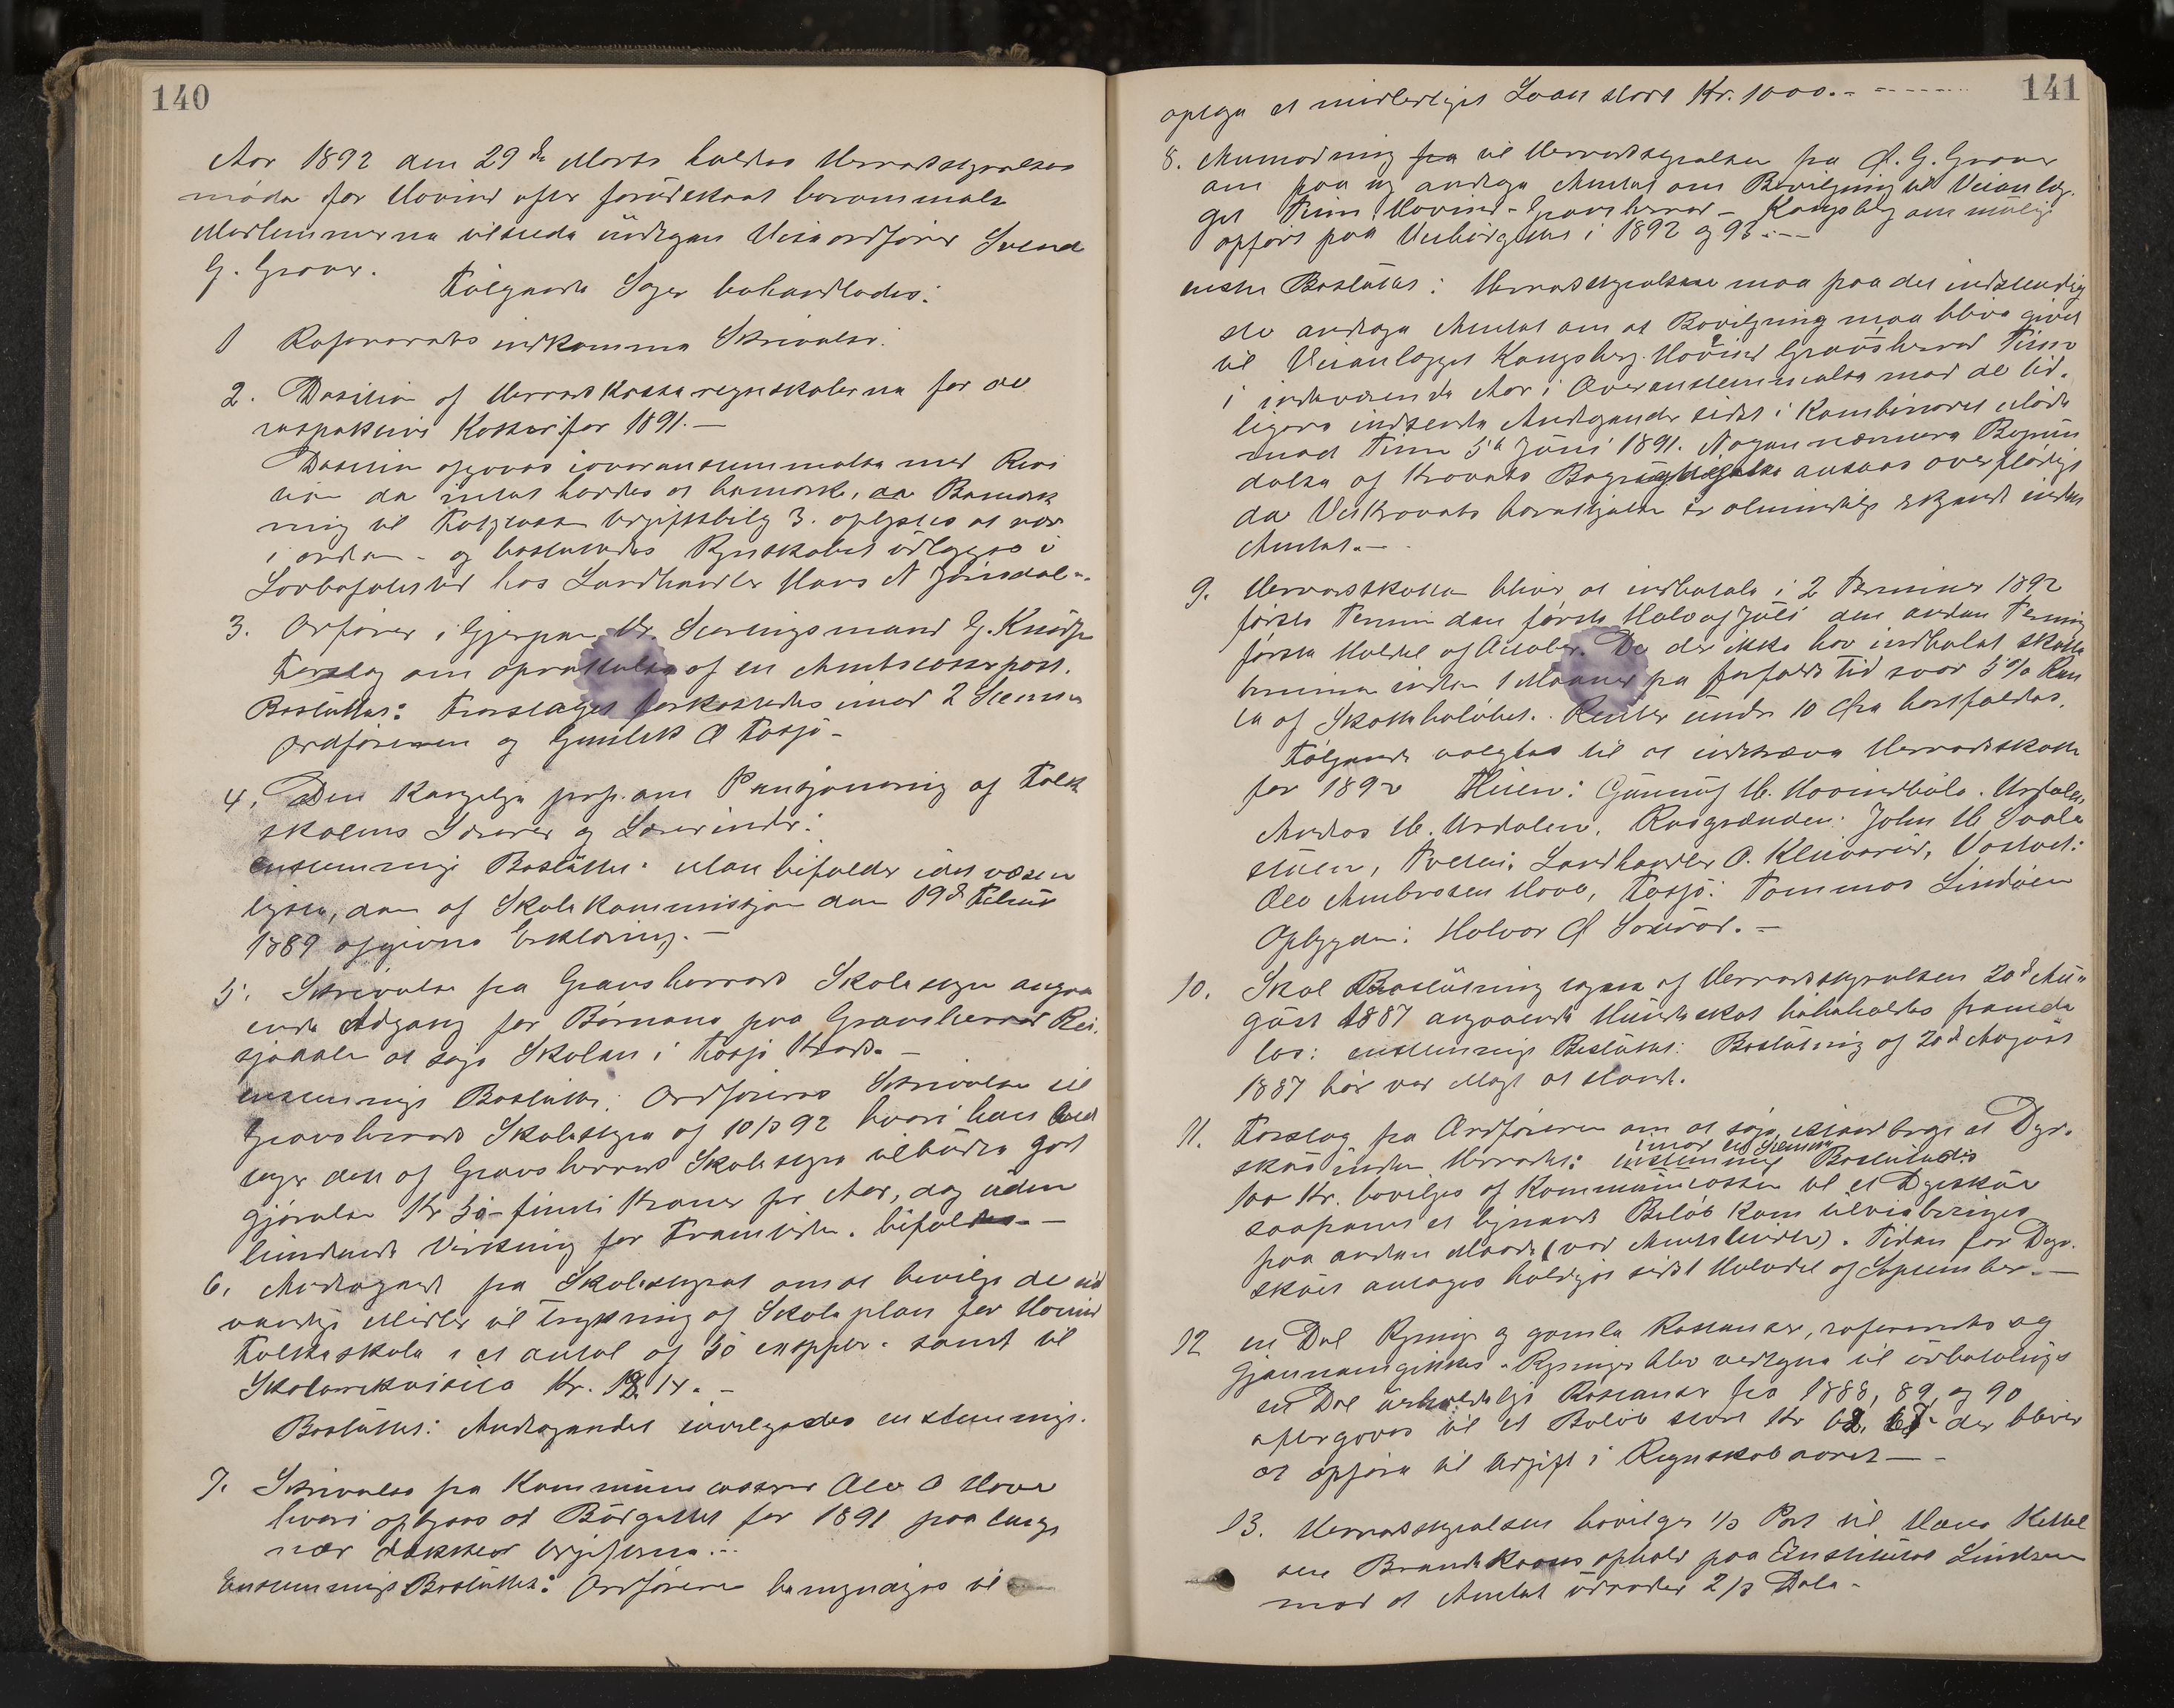 140
Aar 1892 den 29de Marts holdtes Herredsstyrelses
møde for Hovind efter forudskaat berammelse
Medlemmerne tilstede undtagen Viceordfører Svend
G. Graver.
Følgende Sager behandledes:
1 Refereredes indkomne Skrivelser.
2. Decision af Herredskasseregnskaberne for de
respektive Kasser for 1891.—
Decision afgaves i overensstemmelse med Revi
sion da intet havdes at bemærke, da Bemærk
ning til Udgiftsbilg 3. oplystes at være
i orden - og besluttedes Regnskabet udlægges i
Lovbefalet tid hos Landhandler Hans N Jønsdal..
3. Ordfører i Gjerpen Hr. Stortingsmand G. Knudsen
Forslag om oprettelse af en Amtskasserpost.
Beslutter: Forslaget forkastedes imod 2 Stemmer
Ordføreren og Gunleik O Fosjø -
4. Den Kongelige prop. om Pensjonering af Folke
skolens Lærere og Lærerinder:
enstemmig Besluttet: Man bifalder i det væsen
ligste, den af Skolekommissjon den 19de Februar
1889 afgivne Erklæring.—
5. Skrivelse fra Gransherreds Skolestyre angaa
ende Adgang for Børnene paa Gransherred Rei
sjødale at søge Skolen i Fosjø Kreds.—
enstemmig Besluttet: Ordførerens Skrivelse til
Gransherreds Skolestyre af 10/3 92 hvori han
tager den af Gransherreds Skolestyre tilbudte god
gjørelse Kr 50 - femti Kroner pr Aar, dog uden
bindende Virkning for Fremtiden. bifaldes.—
6. Andragende fra Skolestyret om at bevilge de nød
vendige Midler til trykning af Skoleplan for Hovind
Folkeskole i et antal af 50 exspl. samt til
Skolerekvisita Kr. 18.14.-
Besluttet: Andragendet indvilgedes enstemmig.
7. Skrivelse fra Kommunecasserer Ole O Hove
hvori oplyses at Budgettet for 1891 paa langt
nær dækker Udgifterne.-
Enstemmig Besluttet: Ordføreren bemyndiges til
141
optage et midlertidigt Laan stort Kr. 1000.-
8. Anmodning fra til Herredsstyrelsen fra O. G. Graver
om paa ny andrage Amtet om Bevilgning til Veianlæg.
get Tinn Hovind - Gransherred - Kongsberg om mulig
opført paa Veibudgettet i 1892 og 93.—
enstem Besluttet: Herredsstyrelsen maa paa det indstendig
ste andrage Amtet om at Bevilgning maa blive givet
til Veianlægget Kongsberg. Hovind Gransherred Tinn
i indeværende Aar i Overensstemmelse med de tid.
ligere indsendte Andragender sidst i Kombineret Møde
med Tinn 5te Juni 1891. Nogen nærmere Begrun
delse af Kravets Begrundelse ansees overflødigt
da Veikravets berettigelse er almindelig erkjendt inden
Amtet.—
9. Herredsskatten bliver at indbetale i 2 Terminer 1892
første Termin den første Halv af Juli den anden Termin
første Halvdel af October. De der ikke har indbetalt skatte
terminen inden 1 Maaned fra forfalds tid svar 5% Ren
te af Skattebeløbet. Renter under 10 Øre bortfaldes.
Følgende valgtes til at indkræve Herredsskatten
for 1892 Huen: Gunnuf H. Hovindbøle. Urdalen
Andres H. Urdalen. Rusgrænden: John H Svale
støen, Traaen: Landhandler O. Kleivarud, Vestad:
Ole Ambrosen Hove, Fosjø: Tommes Lindøen
Opbygden: Halvor O Sønvød.—
10. Skal Beslutning tagen af Herredsstyrelsen 20de Au-
gust 1887 angaaende Hundeskat bibeholdes fremde
les: enstemmig Besluttet: Beslutning af 20de August
1887 bør ved Magt at stande.
11. Forslag fra Ordføreren om at søge istandbragt et Dyr.
skue inden Herredet: imod en Stemme Besluttedes
100 Kr. bevilges af Kommunecassen til et Dyrskue
saafremt et lignende Beløb kan tilveiebringes
paa anden Maade (ved Amtsmidler). Tiden for Dyr.
skuet antages heldigst sidst Halvdel af September.—
12 en Del Regninger og gamle Restanser, refereredes og
Gjennemgikkes. Regninger blev vedtagne til udbetaling
en Del uerholdelige Restanser fra 1888, 89 og 90
aftergaves til et Beløb stort Kr 62.67- der bliver
at opføre til Udgift i Regnskab aaret—
13. Herredsstyrelsen bevilger 1/3 Part til Hans Kittel
sen Brandekaases ophold paa Institutet Lindøen
mod at Amtet udreder 2/3 Dele.-